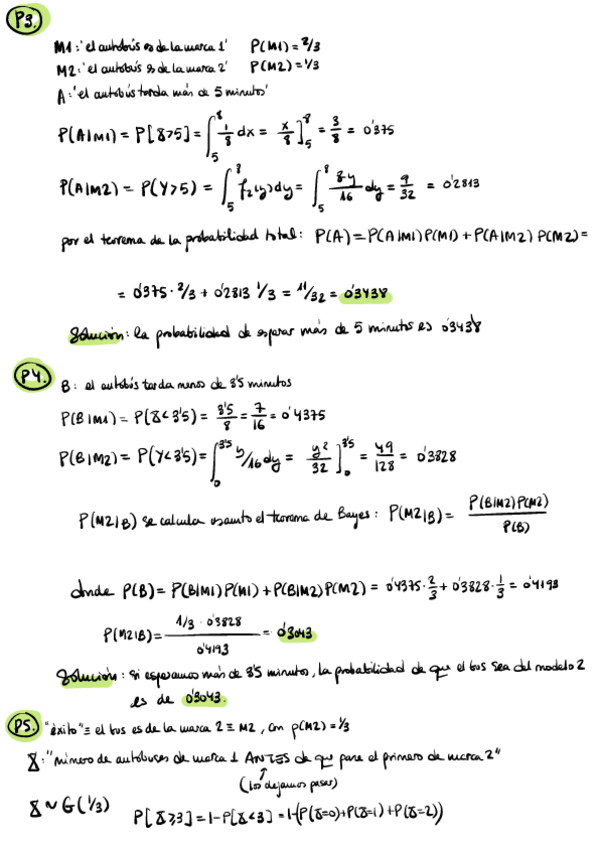 P3.
M1: 'el autobús es de la marca 1' P(M1) = 2/3
M2: 'el autobús es de la marca 2' P(M2) = 1/3
A: 'el autobús tarda más de 5 minutos'
P(A|M1) = P[X>5] = ∫₅⁸ 1/8 dx = x/8]₅⁸ = 3/8 = 0'375
P(A|M2) = P(Y>5) = ∫₅⁸ f₂(y)dy = ∫₅⁸ 8-y/16 dy = 9/32 = 0'2813
por el teorema de la probabilidad total: P(A) = P(A|M1)P(M1) + P(A|M2) P(M2) =
= 0'375 · 2/3 + 0'2813 1/3 = 11/32 = 0'3438
Solución: la probabilidad de esperar más de 5 minutos es 0'3438
P4. B: el autobús tarda menos de 3'5 minutos
P(B|M1) = P(X<3'5) = 3'5/8 = 7/16 = 0'4375
P(B|M2) = P(Y<3'5) = ∫₀^3'5 y/16 dy = y²/32]₀^3'5 = 49/128 = 0'3828
P(M2|B) se calcula usanto el teorema de Bayes: P(M2|B) = P(B|M2)P(M2)/P(B)
donde P(B) = P(B|M1)P(M1) + P(B|M2)P(M2) = 0'4375·2/3 + 0'3828·1/3 = 0'4193
P(M2|B) = 1/3 · 0'3828/0'4193 = 0'3043
Solución: si esperamos más de 3'5 minutos, la probabilidad de que el bus sea del modelo 2
es de 0'3043.
P5. "éxito" ≡ el bus es de la marca 2 ≡ M2, con p(M2) = 1/3
X: "número de autobuses de marca 1 ANTES de que pare el primero de marca 2"
(los dejamos pasar)
X ~ G(1/3) P[X≥3] = 1-P[X<3] = 1-(P(X=0)+P(X=1)+P(X=2))